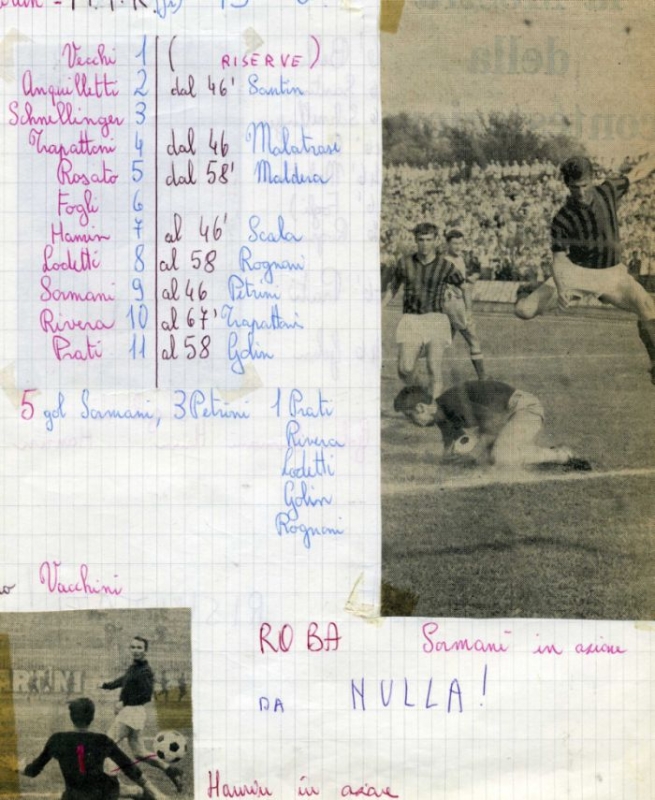 Vecchi 1 ( RISERVE )
Anquilletti 2 dal 46' Santin
Schnellinger 3
Trapattoni 4 dal 46 Malatrasi
Rosato 5 dal 58' Maldera
Fogli 6
Hamrin 7 al 46' Scala
Lodetti 8 al 58 Rognoni
Sormani 9 al 46 Petrini
Rivera 10 al 67' Trapattoni
Prati 11 al 58 Golin
5 gol Sormani, 3 Petrini 1 Prati
Rivera
Lodetti
Golin
Rognoni
Vacchini
ROBA
DA NULLA!
Sormani in azione
Hamrin in azione
1
della